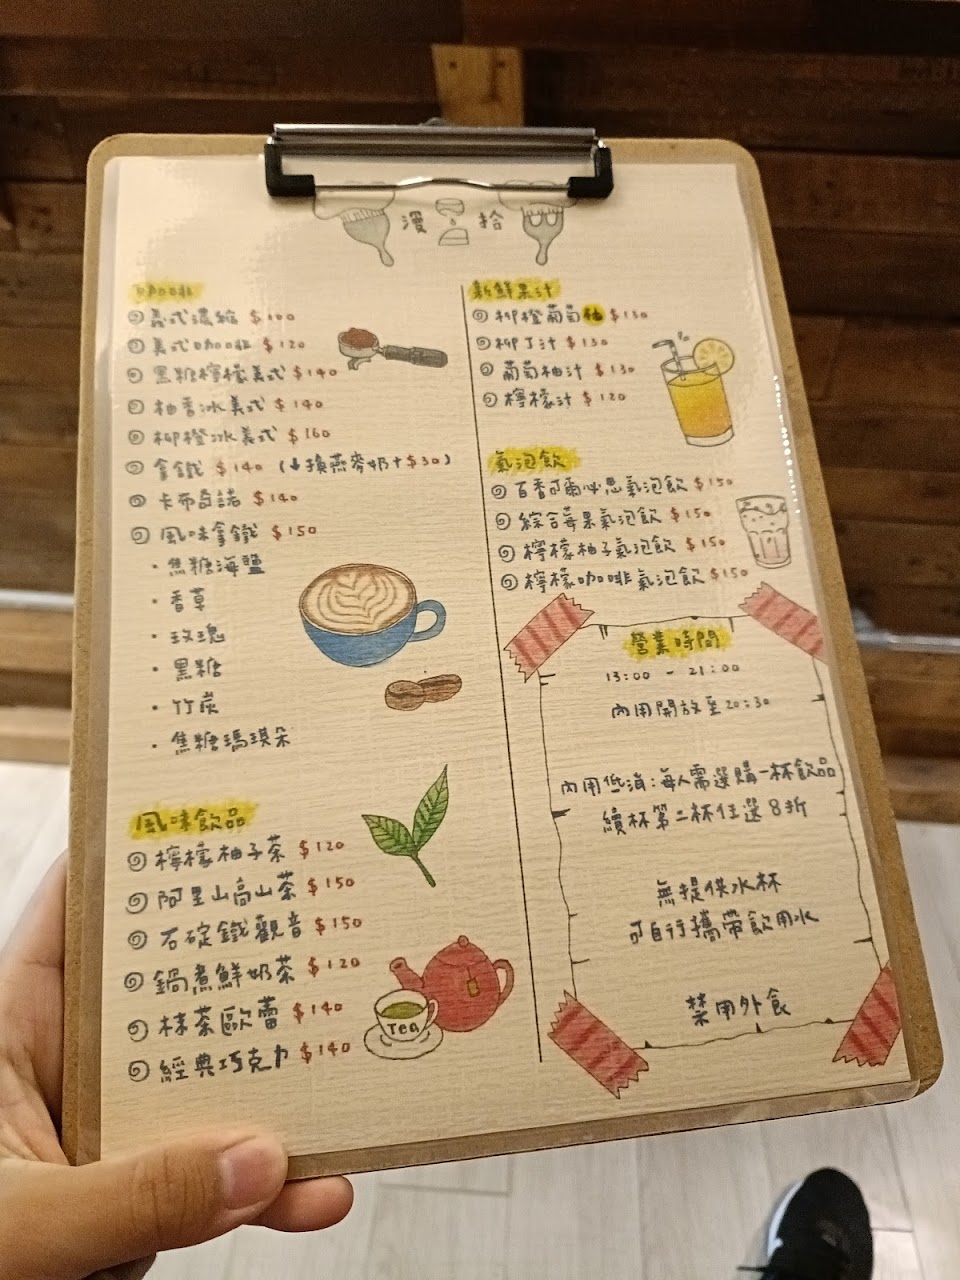 漫 拾
咖啡
義式濃縮 $100
美式咖啡 $120
黑糖檸檬美式 $140
柚香冰美式 $140
柳橙冰美式 $160
拿鐵 $140 (↓換燕麥奶+$30)
卡布奇諾 $140
風味拿鐵 $150
・焦糖海鹽
・香草
・玫瑰
・黑糖
・竹炭
・焦糖瑪琪朵
風味飲品
檸檬柚子茶 $120
阿里山高山茶 $150
石碇鐵觀音 $150
鍋煮鮮奶茶 $120
抹茶歐蕾 $140
經典巧克力 $140
TEA
新鮮果汁
柳橙葡萄柚 $130
柳丁汁 $130
葡萄柚汁 $130
檸檬汁 $120
氣泡飲
百香可爾必思氣泡飲 $150
綜合莓果氣泡飲 $150
檸檬柚子氣泡飲 $150
檸檬咖啡氣泡飲 $150
營業時間
13:00 - 21:00
內用開放至20:30
內用低消:每人需選購一杯飲品
續杯第二杯任選8折
無提供水杯
可自行攜帶飲用水
禁用外食